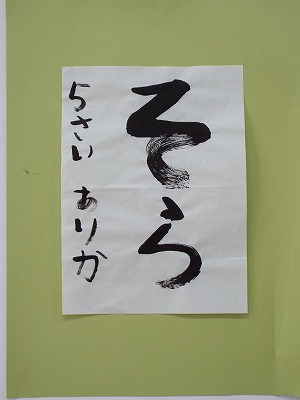 そら
5さい ありか